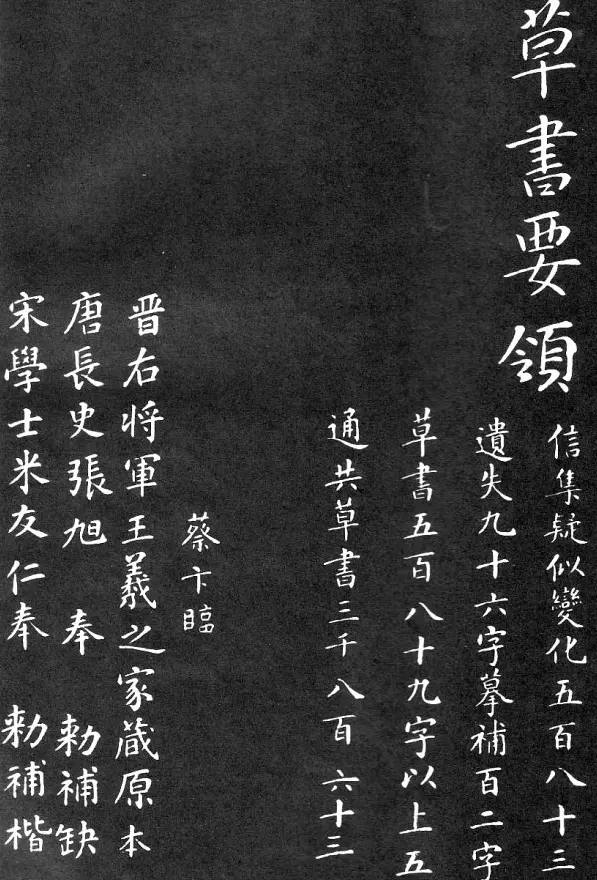 草書要領
信集疑似變化五百八十三
遺失九十六字摹補百二字
草書五百八十九字以上五
通共草書三千八百六十三
蔡卞臨
晋右将軍王羲之家蔵原本
唐長史張旭奉勑補缺
宋學士米友仁奉勑補楷